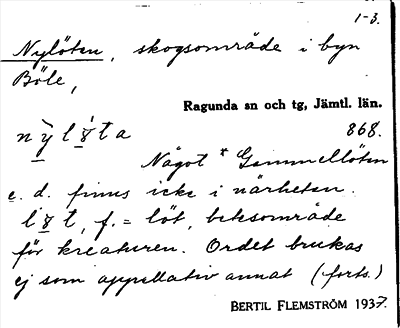 1-3.
Nylöten, skogsområde i byn
Böle,
Ragunda sn och tg, Jämtl. län.
868.
Något * Gammellöten
e. d. finns icke i närheten.
f. = löt, betesområde
för kreaturen. Ordet brukas
ej som appellativ annat (forts.)
BERTIL FLEMSTRÖM 1937.